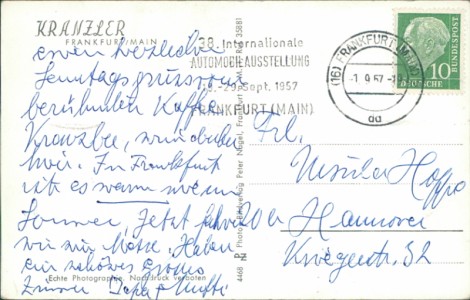 KRANZLER
FRANKFURT/MAIN
38. Internationale
AUTOMOBIL AUSSTELLUNG
-29. Sept. 1957
FRANKFURT (MAIN)
(16) FRANKFURT (MAIN)
-1.9.57.-1
aa
10
DEUTSCHE
BUNDESPOST
einen herzlichen
Sonntagsgruss vom
berühmten Kaffee
Kranzler, senden
wir. In Frankfurt
ist es warm wie im
Sommer. Jetzt fahren
wir zur Messe. Haben
ein schönes großes
Zimmer Papa + Mutti
Echte Photographie Nachdruck verboten
4468
Photo- u. Bildverlag Peter Nagel, Frankfurt a. M. Ruf 35881
Frl.
Ursula Hoppe
20a Hannover
Kriegerstr. 32